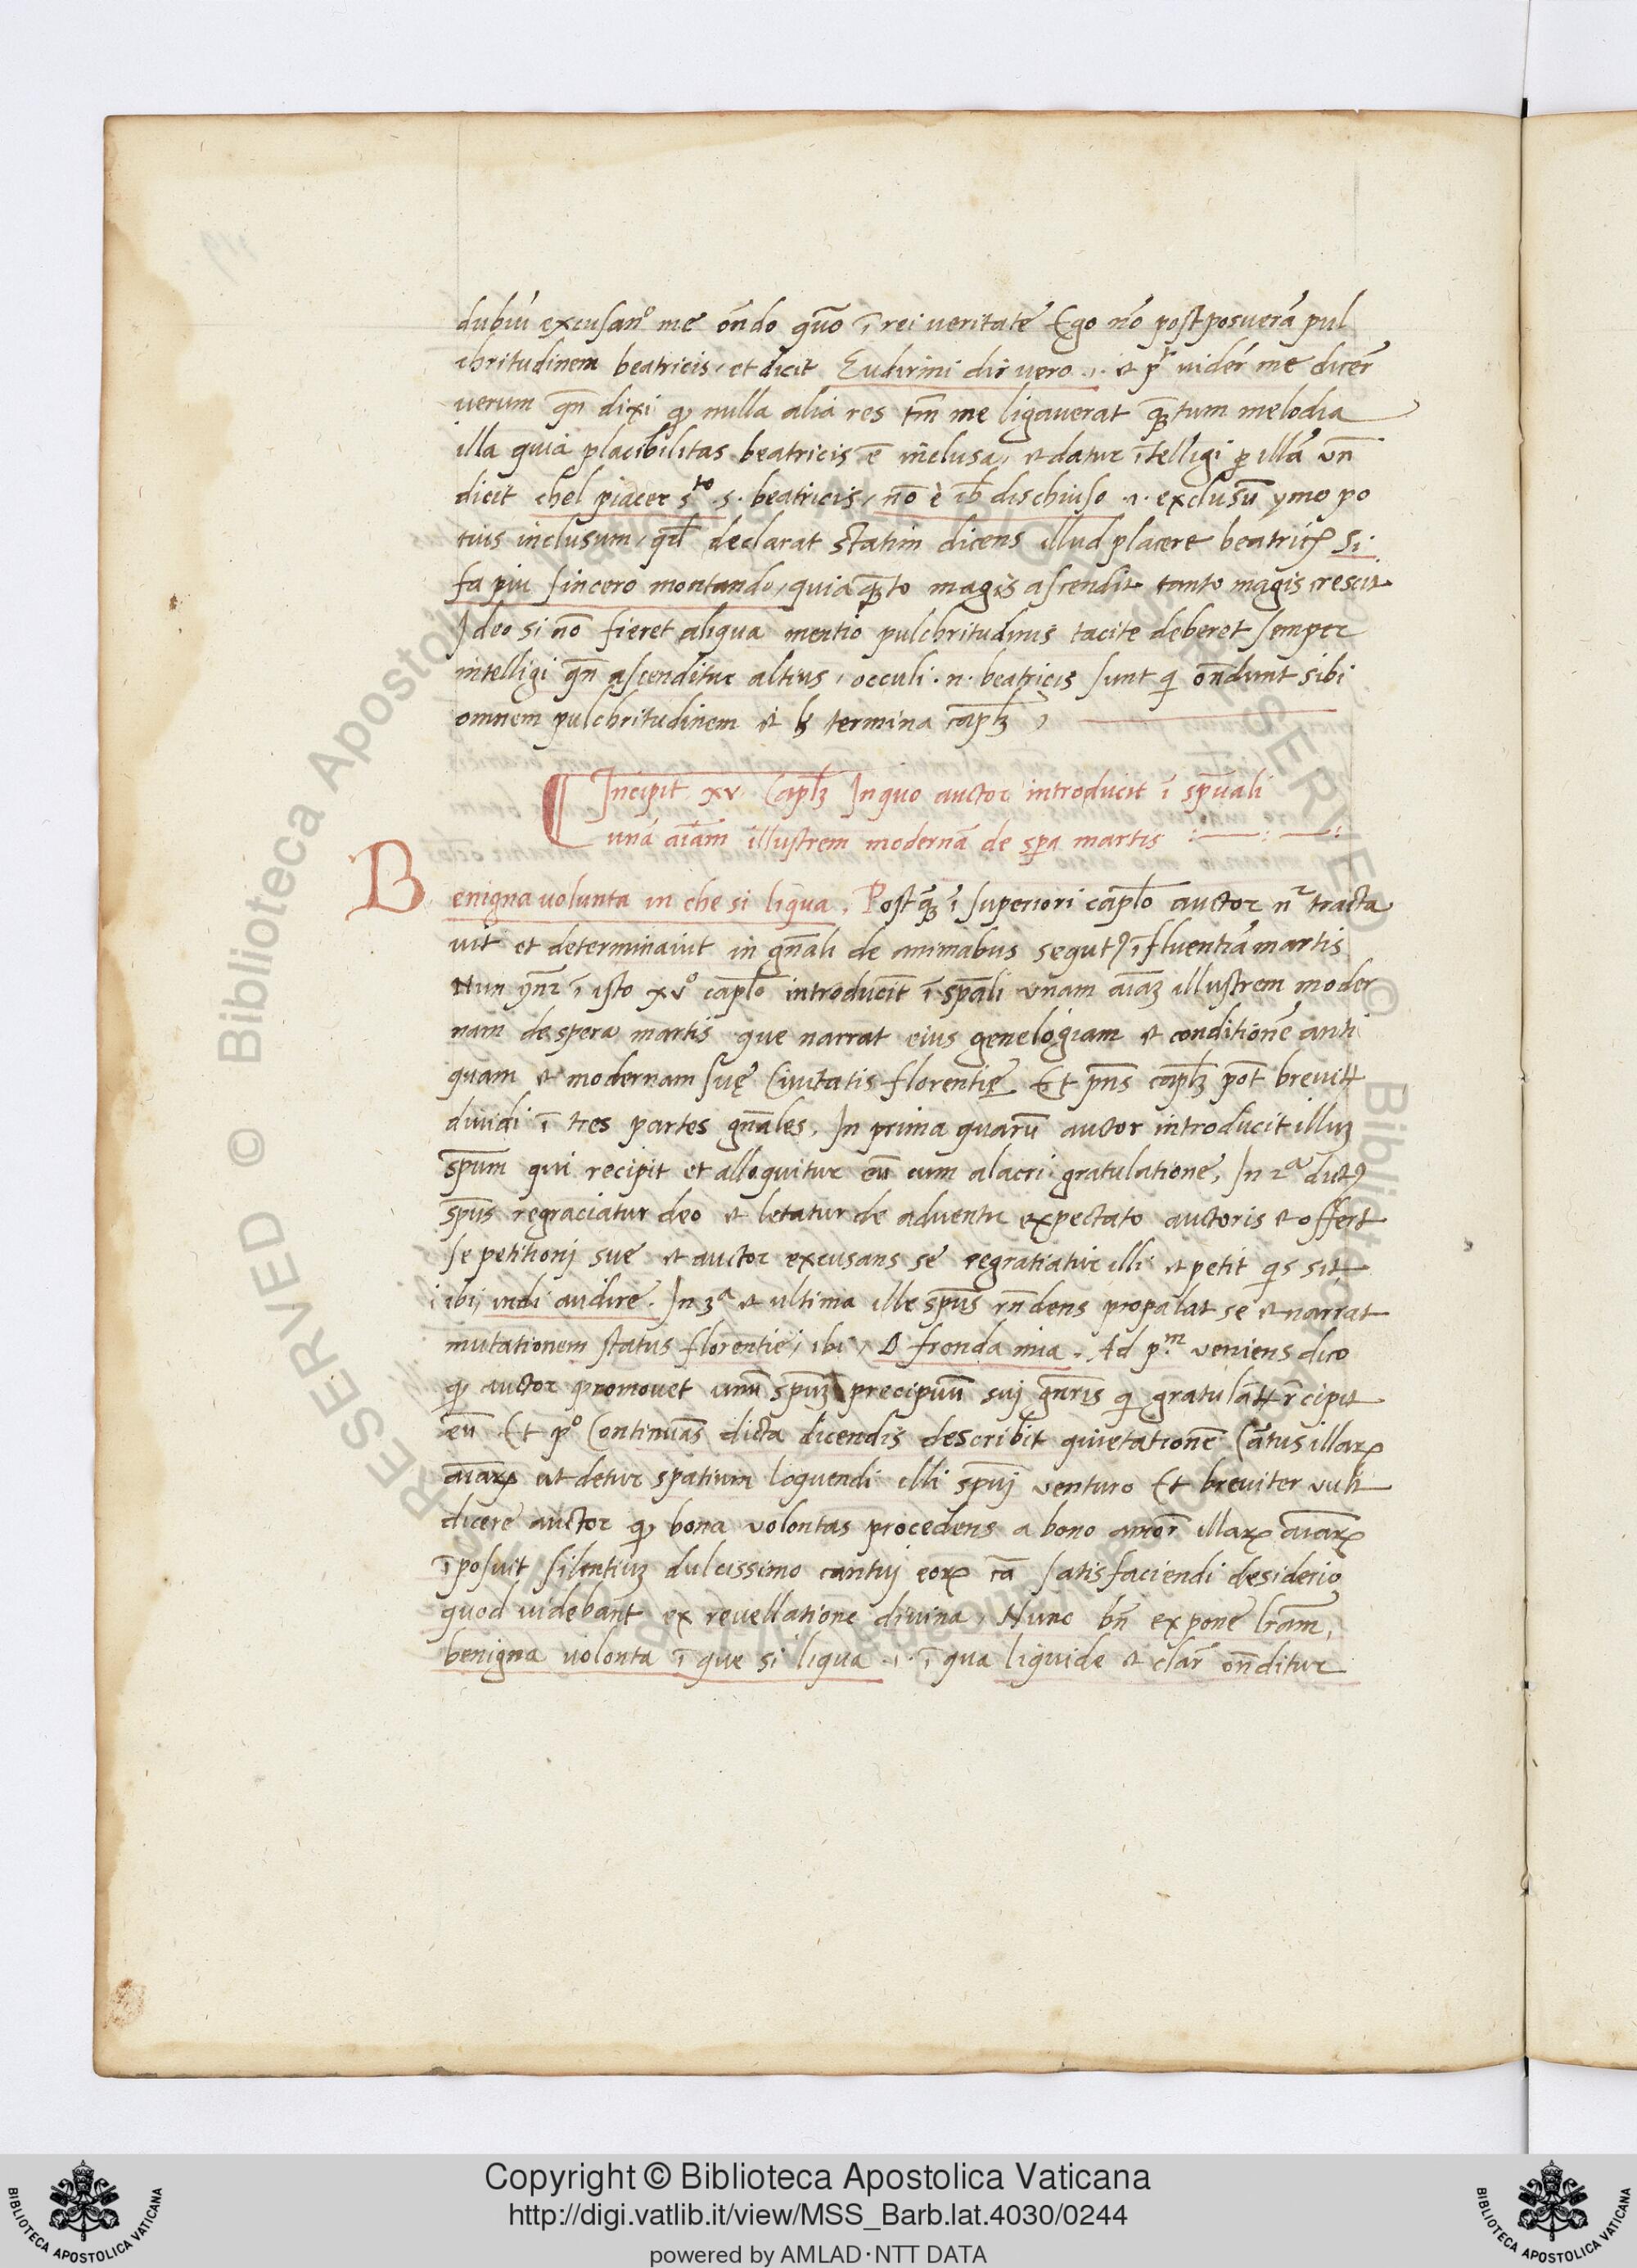 dubiũ excusanº me oñdo quõ ĩ rei veritate Ego nõ postposuerã pul
chritudinem beatricis, et dicit Eudirmi dir vero .i. et pʳ viděr me dicer̃
verum qñ dixi ꝙ nulla alia res tm̃ me ligaverat ꝙ̃tum melodia
illa quia placibilitas beatricis ẽ inclusa, et datur ĩtelligi ꝑ illã vñ
dicit chel piacer sᵗᵒ .s. beatricis, nõ è ib̃ dischiuso .i. exclusũ ymo po
tius inclusum, qd̃ declarat statim dicens illud placere beatricꝭ si
fa piu sincero montando, quia ꝙ̃to magis ascendit tanto magis crescit
Ideo si nõ fieret aliqua mentio pulchritudinis tacite deberet semper
intelligi qñ ascenditur altius, occuli .n. beatricis sunt q̃ oñdunt sibi
omnem pulchritudinem et termina cap̃lꝫ
Incipit xv. Cap̃lꝫ In quo auctor introducit ĩ sp̃uali
unã aiãm illustrem modernã de sp̃a martis
Benigna volunta in che si liqua. Postꝙ̃ ĩ superiori cap̃lo auctor nʳ tracta
vit et determinavit in gñali de animabus segutꝭ ĩfluentiã martis
Nun ĩ isto xvº cap̃lo introducit ĩ sp̃ali vnam aiãꝫ illustrem moder
nam de spera martis que narrat eius genelogiam et conditionẽ anti
quam et modernam suę Civitatis florentię Et pñs cap̃lꝫ põt brevitʳ
dividi ĩ tres partes gñales. In prima quarũ auctor introducit illuꝫ
sp̃um qui recipit et alloquitur eũ cum alacri gratulatione, In 2ᵃ dictꝰ
sp̃us regraciatur deo et letatur de adventu expectato auctoris et offert
se petitionj sue et auctor excusans se regratiatur illi et petit qͥs sit
ibi, indi audire. In 3ᵃ et ultima ille sp̃us rñdens propalat se et narrat
mutationem status florentie, ibi, O fronda mia. Ad p.ᵐ veniens dico
ꝙ auctor promovet unũ sp̃uꝫ precipuũ suj gñris q̃ gratulãtʳ recipit
eũ Et pº Continuãs dicta dicendis describit quietationẽ Cãtus illaꝝ
aiãꝝ ut detur spatium loquendi illi sp̃uj venturo Et breviter vult
dicere auctor ꝙ bona volontas procedens a bono amor̃ illaꝝ aiãꝝ
ĩposuit silentiuꝫ dulcissimo cantuj eoꝝ cã satisfaciendi desiderio
quod videbant ex revellatione divina, Nunc bñ expone lr̃am,
benigna volonta ĩ que si liqua .i. ĩ qua liquide et clar̃ oñditur
Copyright © Biblioteca Apostolica Vaticana
http://digi.vatlib.it/view/MSS_Barb.lat.4030/0244
powered by AMLAD·NTT DATA
BIBLIOTECA APOSTOLICA VATICANA
BIBLIOTECA APOSTOLICA VATICANA